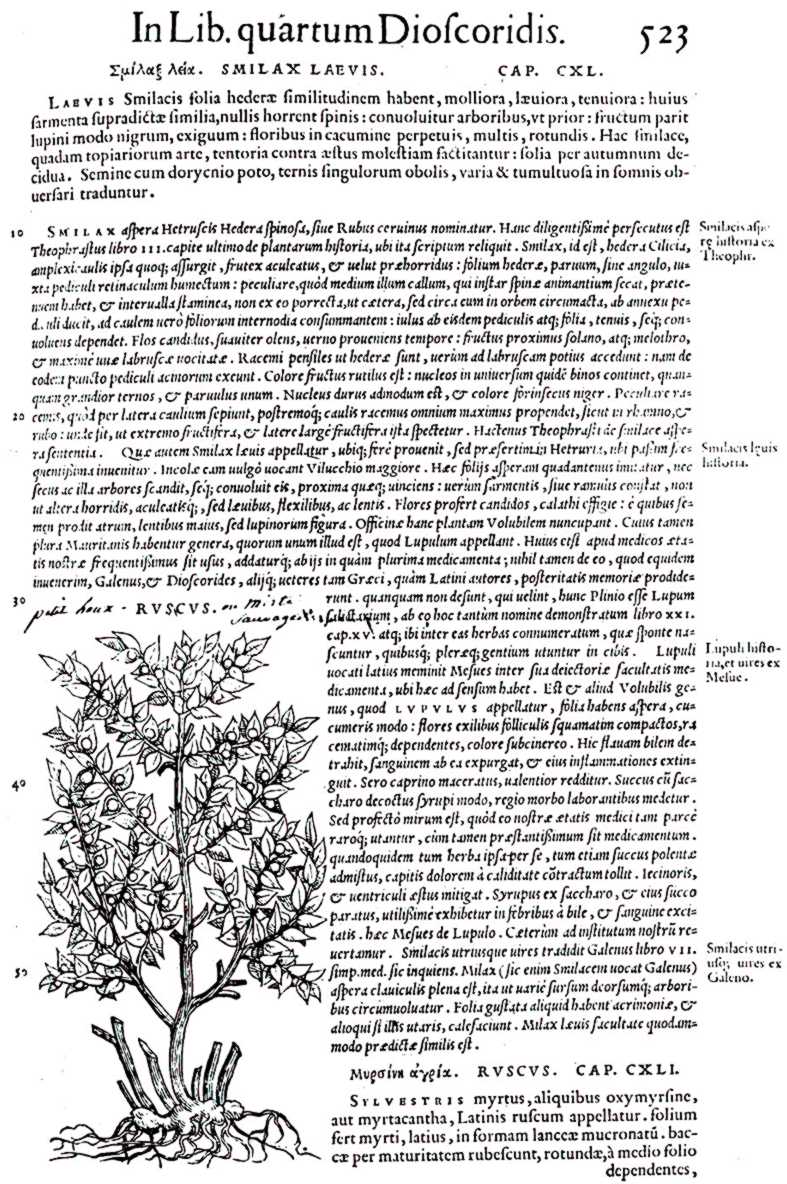 In Lib. quártum Dioſcoridis. 523
Σμίλαξ λεία. SMILAX LAEVIS. CAP. CXL.
LAEVIS Smilacis folia hederæ ſimilitudinem habent, molliora, læuiora, tenuiora: huius
ſarmenta ſupradictæ ſimilia, nullis horrent ſpinis: conuoluitur arboribus, vt prior: fructum parit
lupini modo nigrum, exiguum: floribus in cacumine perpetuis, multis, rotundis. Hac ſimilace,
quadam topiariorum arte, tentoria contra æſtus moleſtiam factitantur: folia per autumnum de-
cidua. Semine cum dorycnio poto, ternis ſingulorum obolis, varia & tumultuoſa in ſomnis ob-
uerſari traduntur.
10 SMILAX aſpera Hetruſcis Hedera ſpinoſa, ſiue Rubus ceruinus nominatur. Hanc diligentiſſimè perſecutus eſt
Theophraſtus libro III. capite ultimo de plantarum hiſtoria, ubi ita ſcriptum reliquit. Smilax, id eſt, hedera Cilicia,
amplexicaulis ipſa quoq; aſſurgit, frutex aculeatus, & uelut præhorridus: folium hederæ, paruum, ſine angulo, iu-
xta pediculi retinaculum humectum: peculiare, quòd medium illum callum, qui inſtar ſpinæ animantium ſecat, præte-
nuem habet, & interualla ſtaminea, non ex eo porrecta, ut cætera, ſed circa eum in orbem circumacta, ab annexu pe-
diculi ducit, ad caulem uerò foliorum internodia conſummantem: iulus ab eiſdem pediculis atq; folia, tenuis, ſeq; con-
uoluens dependet. Flos candidus, ſuauiter olens, uerno proueniens tempore: fructus proximus ſolano, atq; melothro,
& maximè uuæ labruſcæ uocitatæ. Racemi penſiles ut hederæ ſunt, uerùm ad labruſcam potius accedunt: nam de
eodem puncto pediculi acinorum exeunt. Colore fructus rutilus eſt: nucleos in uniuerſum quidē binos continet, quan-
quam grandior ternos, & paruulus unum. Nucleus durus admodum eſt, & colore forinſecus niger. Peculiare ra-
20 cemis, quòd per latera caulium ſepiunt, poſtremoq; caulis racemus omnium maximus propendet, ſicut in rhamno, &
rubo: unde fit, ut extremo fructifera, & latere largè fructifera iſta ſpectetur. Hactenus Theophraſtus de ſmilace aſpe-
ra ſententia. Quæ autem Smilax læuis appellatur, ubiq; ferè prouenit, ſed præſertim in Hetruria, ubi paſſim fre-
quentiſſima inuenitur. Incolæ eam uulgò uocant Vilucchio maggiore. Hæc folijs aſperam quadantenus imitatur, nec
ſecus ac illa arbores ſcandit, ſeq; conuoluit eis, proxima quæq; uinciens: uerùm ſarmentis, ſiue ramulis conſtat, non
ut altera horridis, aculeatisq;, ſed læuibus, flexilibus, ac lentis. Flores profert candidos, calathi effigie: è quibus ſe-
men prodit atrum, lentibus maius, ſed lupinorum figura. Officinæ hanc plantam Volubilem nuncupant. Cuius tamen
plura Mauritanis habentur genera, quorum unum illud eſt, quod Lupulum appellant. Huius etſi apud medicos æta-
tis noſtræ frequentiſſimus ſit uſus, addaturq; ab ijs in quàm plurima medicamenta; nihil tamen de eo, quod equidem
inuenerim, Galenus, & Dioſcorides, alijq; ueteres tam Græci, quàm Latini autores, poſteritatis memoriæ prodide-
30 runt. quanquam non deſunt, qui uelint, hunc Plinio eſſe Lupum
ſalictarium, ab eo hoc tantùm nomine demonſtratum libro XXI.
cap. XV. atq; ibi inter eas herbas connumeratum, quæ ſponte na-
ſcuntur, quibusq; pleræq; gentium utuntur in cibis. Lupuli
uocati latius meminit Meſues inter ſua deiectoriæ facultatis me-
dicamenta, ubi hæc ad ſenſum habet. Eſt & aliud Volubilis ge-
nus, quod LVPVLVS appellatur, folia habens aſpera, cu-
cumeris modo: flores exilibus folliculis ſquamatim compactos, ra
cematimq; dependentes, colore ſubcinereo. Hic flauam bilem de-
trahit, ſanguinem ab ea expurgat, & eius inflammationes extin-
40 guit. Sero caprino maceratus, ualentior redditur. Succus cū ſac-
charo decoctus ſyrupi modo, regio morbo laborantibus medetur.
Sed profectò mirum eſt, quòd eo noſtræ ætatis medici tam parcè
raroq; utantur, cùm tamen præſtantiſſimum ſit medicamentum.
quandoquidem tum herba ipſa per ſe, tum etiam ſuccus polentæ
admiſtus, capitis dolorem à caliditate cōtractum tollit. Iecinoris,
& uentriculi æſtus mitigat. Syrupus ex ſaccharo, & eius ſucco
paratus, utiliſſimè exhibetur in febribus à bile, & ſanguine exci-
tatis. hæc Meſues de Lupulo. Cæterùm ad inſtitutum noſtrū re-
uertamur. Smilacis utriusque uires tradidit Galenus libro VII.
50 ſimp. med. ſic inquiens. Milax (ſic enim Smilacem uocat Galenus)
aſpera clauiculis plena eſt, ita ut uariè ſurſum deorſumq; arbori-
bus circumuoluatur. Folia guſtata aliquid habent acrimoniæ, &
alioqui ſi illis utaris, calefaciunt. Milax læuis facultate quodam-
modo prædictæ ſimilis eſt.
Smilacis aſpe-
ræ hiſtoria ex
Theophr.
Smilacis lęuis
hiſtoria.
Lupuli hiſto-
ria, et uires ex
Meſue.
Smilacis utri-
uſq; uires ex
Galeno.
petit houx - RVSCVS. ou mirte
sauvage
Μυρσίνη ἀγρία. RVSCVS. CAP. CXLI.
SYLVESTRIS myrtus, aliquibus oxymyrſine,
aut myrtacantha, Latinis ruſcum appellatur. folium
fert myrti, latius, in formam lanceæ mucronatū. bac-
cæ per maturitatem rubeſcunt, rotundæ, à medio folio
dependentes,